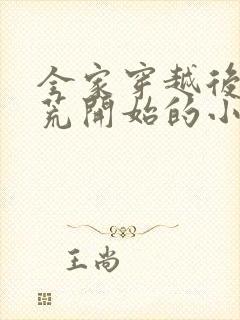 全家穿越後
荒開始的小
王尚